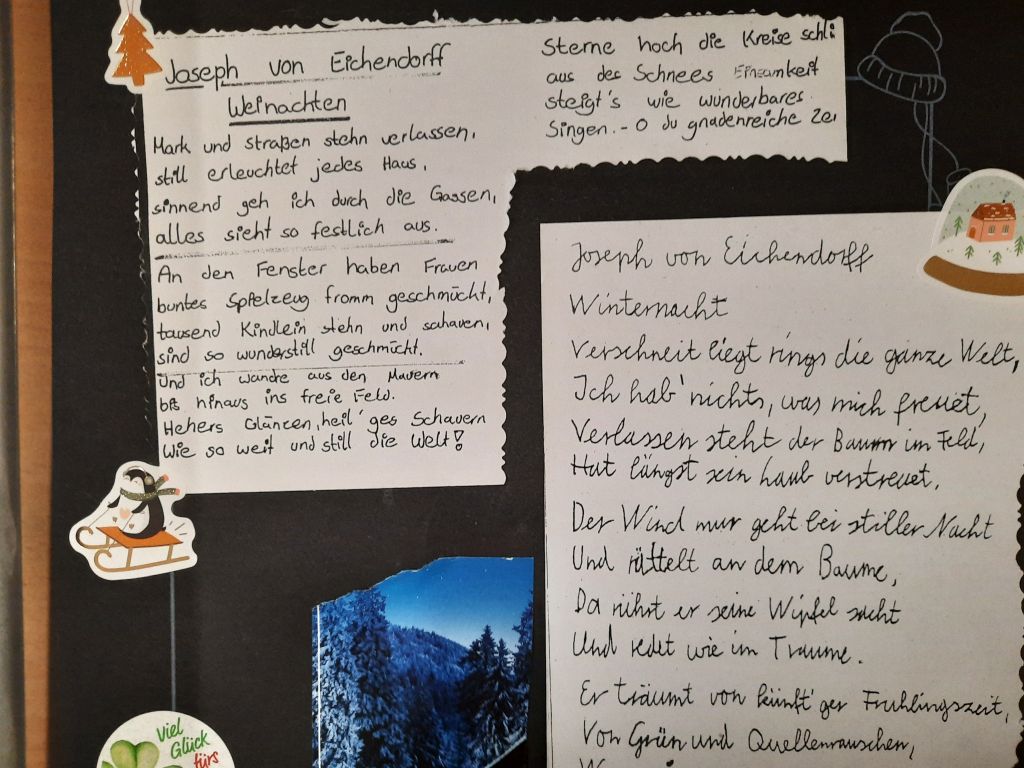 Joseph von Eichendorff
Weinachten
Mark und straßen stehn verlassen,
still erleuchtet jedes Haus,
sinnend geh ich durch die Gassen,
alles sieht so festlich aus.
An den Fenster haben Frauen
buntes Spielzeug fromm geschmückt,
tausend Kindlein stehn und schauen,
sind so wunderstill geschmückt.
Und ich wandre aus den Mauern
bis hinaus ins freie Feld.
Hehers Glänzen, heil'ges Schauern
Wie so weit und still die Welt!
Sterne hoch die Kreise schli
aus des Schnees Einsamkeit
steigt's wie wunderbares
Singen. - O du gnadenreiche Zei
Joseph von Eichendorff
Winternacht
Verschneit liegt rings die ganze Welt,
Ich hab' nichts, was mich freuet,
Verlassen steht der Baum im Feld,
Hat längst sein Laub verstreuet.
Der Wind nur geht bei stiller Nacht
Und rüttelt an dem Baume,
Da rührt er seine Wipfel sacht
Und redet wie im Traume.
Er träumt von künft'ger Frühlingszeit,
Von Grün und Quellenrauschen,
Viel
Glück
fürs